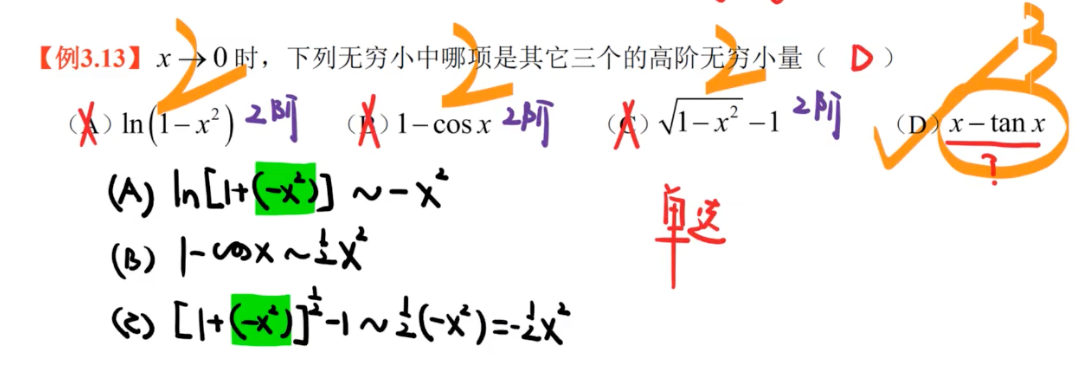 2 2 2 3
【例3.13】x→0时，下列无穷小中哪项是其它三个的高阶无穷小量（ D ）
（A）ln(1−x²) 2阶 （B）1−cos x 2阶 （C）√(1−x²) −1 2阶 （D）x−tan x
?
(A) ln[1+(-x²)] ~ -x²
单选
(B) 1-cosx ~ ½x²
(C) [1+(-x²)]^½ -1 ~ ½(-x²) = -½x²